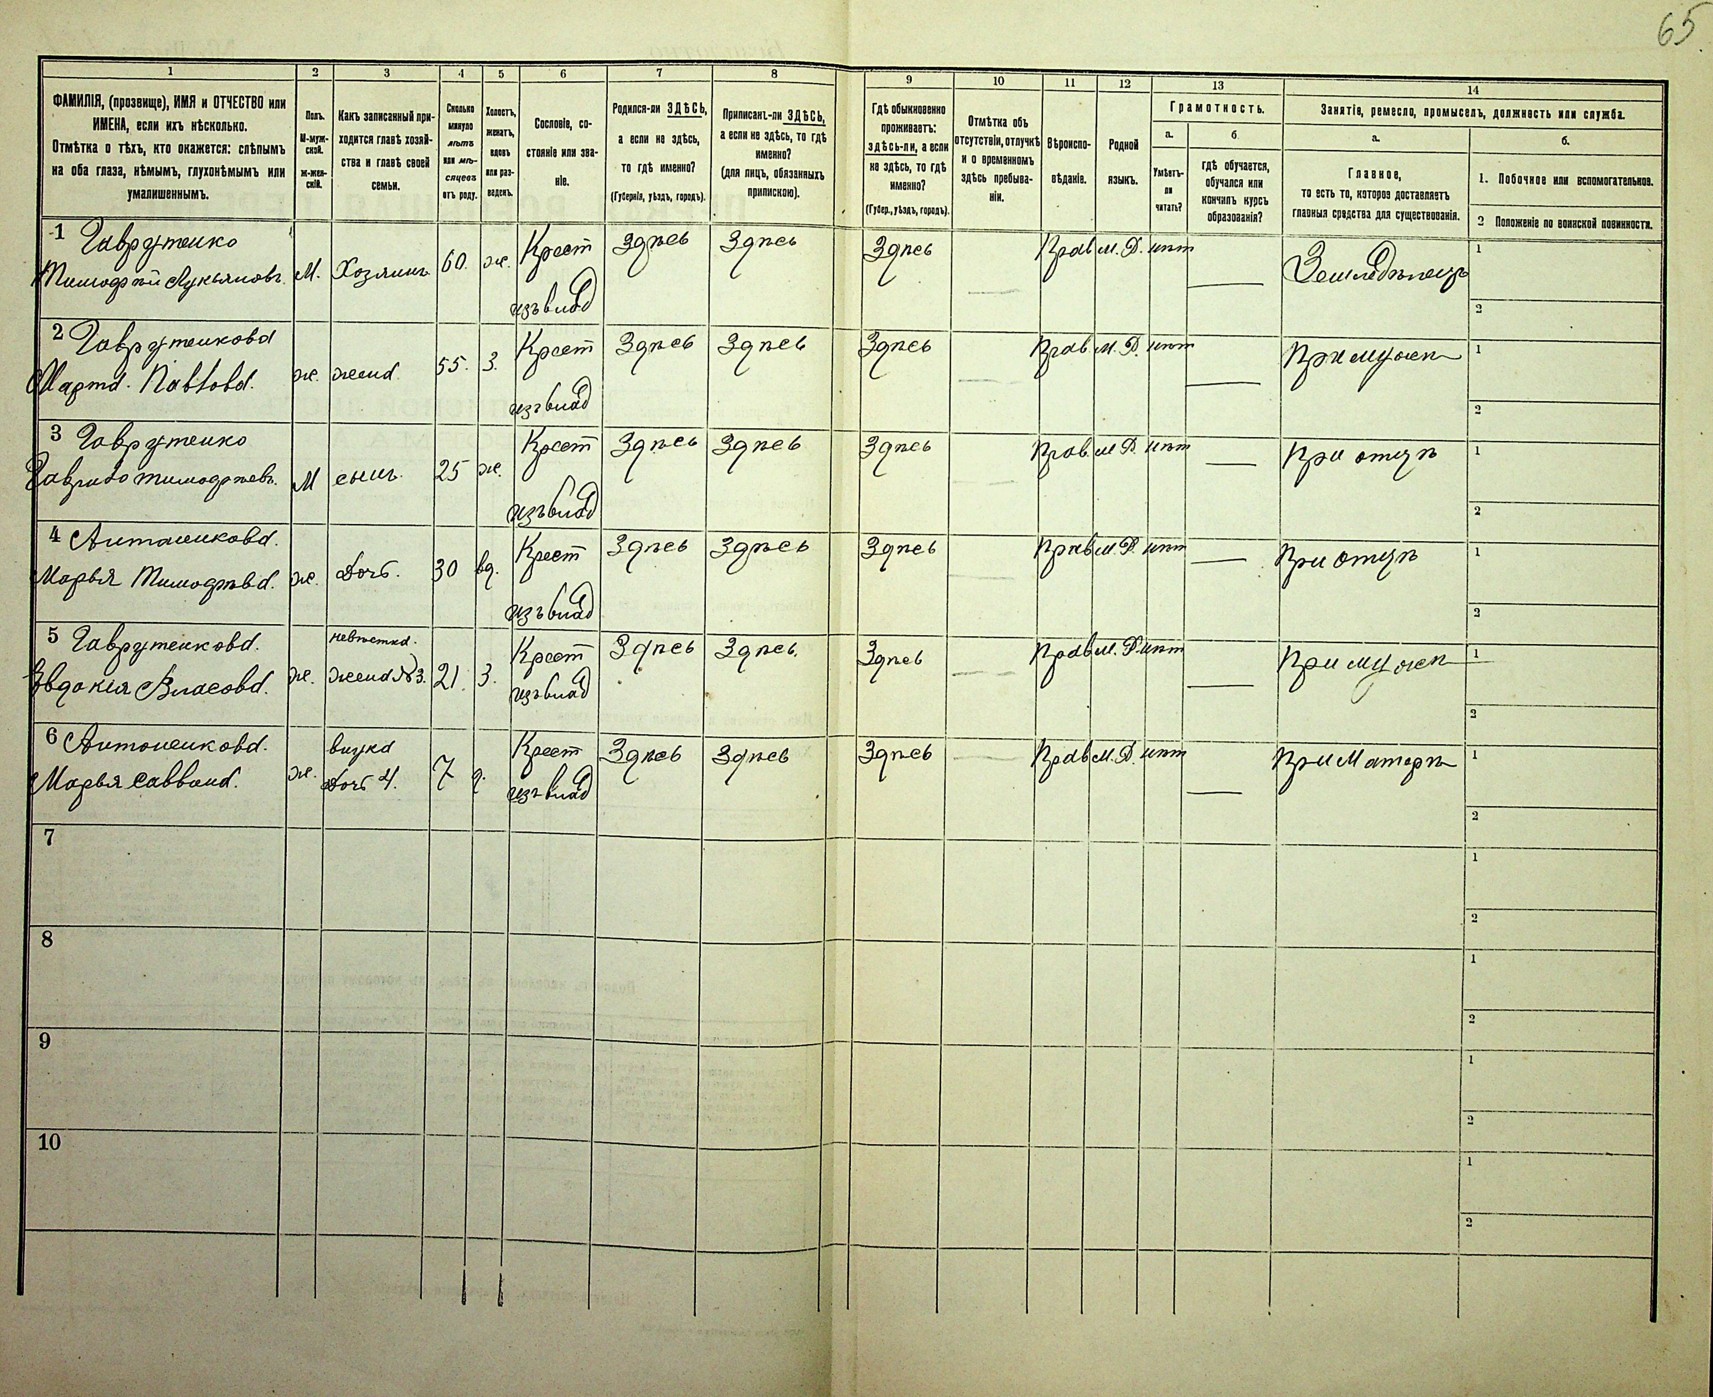 65
1
2
3
4
5
6
7
8
9
10
11
12
13
14
ФАМИЛІЯ, (прозвище), ИМЯ и ОТЧЕСТВО или
ИМЕНА, если ихъ нѣсколько.
Отмѣтка о тѣхъ, кто окажется: слѣпымъ
на оба глаза, нѣмымъ, глухонѣмымъ или
умалишеннымъ.
Полъ.
М-муж-
ской.
ж-жен-
скій.
Какъ записанный при-
ходится главѣ хозяй-
ства и главѣ своей
семьи.
Сколько
минуло
лѣтъ
или мѣ-
сяцевъ
отъ роду.
Холостъ,
женатъ,
вдовъ
или раз-
веденъ.
Сословіе, со-
стояніе или зва-
ніе.
Родился-ли ЗДѢСЬ,
а если не здѣсь,
то гдѣ именно?
(Губернія, уѣздъ, городъ).
Приписанъ-ли ЗДѢСЬ,
а если не здѣсь, то гдѣ
именно?
(для лицъ, обязанныхъ
припискою).
Гдѣ обыкновенно
проживаетъ:
здѣсь-ли, а если
не здѣсь, то гдѣ
именно?
(Губер., уѣздъ, городъ).
Отмѣтка объ
отсутствіи, отлучкѣ
и о временномъ
здѣсь пребыва-
ніи.
Вѣроиспо-
вѣданіе.
Родной
языкъ.
Грамотность.
а.
б
Умѣетъ-
ли
читать?
гдѣ обучается,
обучался или
кончилъ курсъ
образованія?
Занятіе, ремесло, промыселъ, должность или служба.
а.
б.
Главное,
то есть то, которое доставляетъ
главныя средства для существованія.
1. Побочное или вспомогательное.
2 Положеніе по воинской повинности.
1 Гаврутенко
Тимофѣй Лукьяновъ М. Хозяинъ 60. ж. Крест Здѣсь Здѣсь Здѣсь Прав м. Р. нѣт Земледѣлецъ 1
изъ влад 2
2 Гаврутенкова
Марта Павлова. ж. жена 55. З. Крест Здѣсь Здѣсь Здѣсь Прав м. Р. нѣт При мужѣ 1
изъ влад 2
3 Гаврутенко
Гаврило Тимофѣевъ. М сынъ. 25 ж. Крест Здѣсь Здѣсь Здѣсь Прав. м. Р. нѣт При отцѣ 1
изъ влад 2
4 Антоненкова.
Марья Тимофѣева. ж. Дочь. 30 вд. Крест Здѣсь Здѣсь Здѣсь Прав м. Р. нѣт При отцѣ 1
изъ влад 2
5 Гаврутенкова. невѣстка.
Евдокія Власова. ж. жена №3. 21. З. Крест Здѣсь Здѣсь. Здѣсь Прав м. Р. нѣт При мужѣ 1
изъ влад 2
6 Антоненкова. внука
Марья Саввина. ж. Дочь 4. 7 д. Крест Здѣсь Здѣсь Здѣсь Прав м. Р. нѣт При Матерѣ 1
изъ влад 2
7 1
2
8 1
2
9 1
2
10 1
2